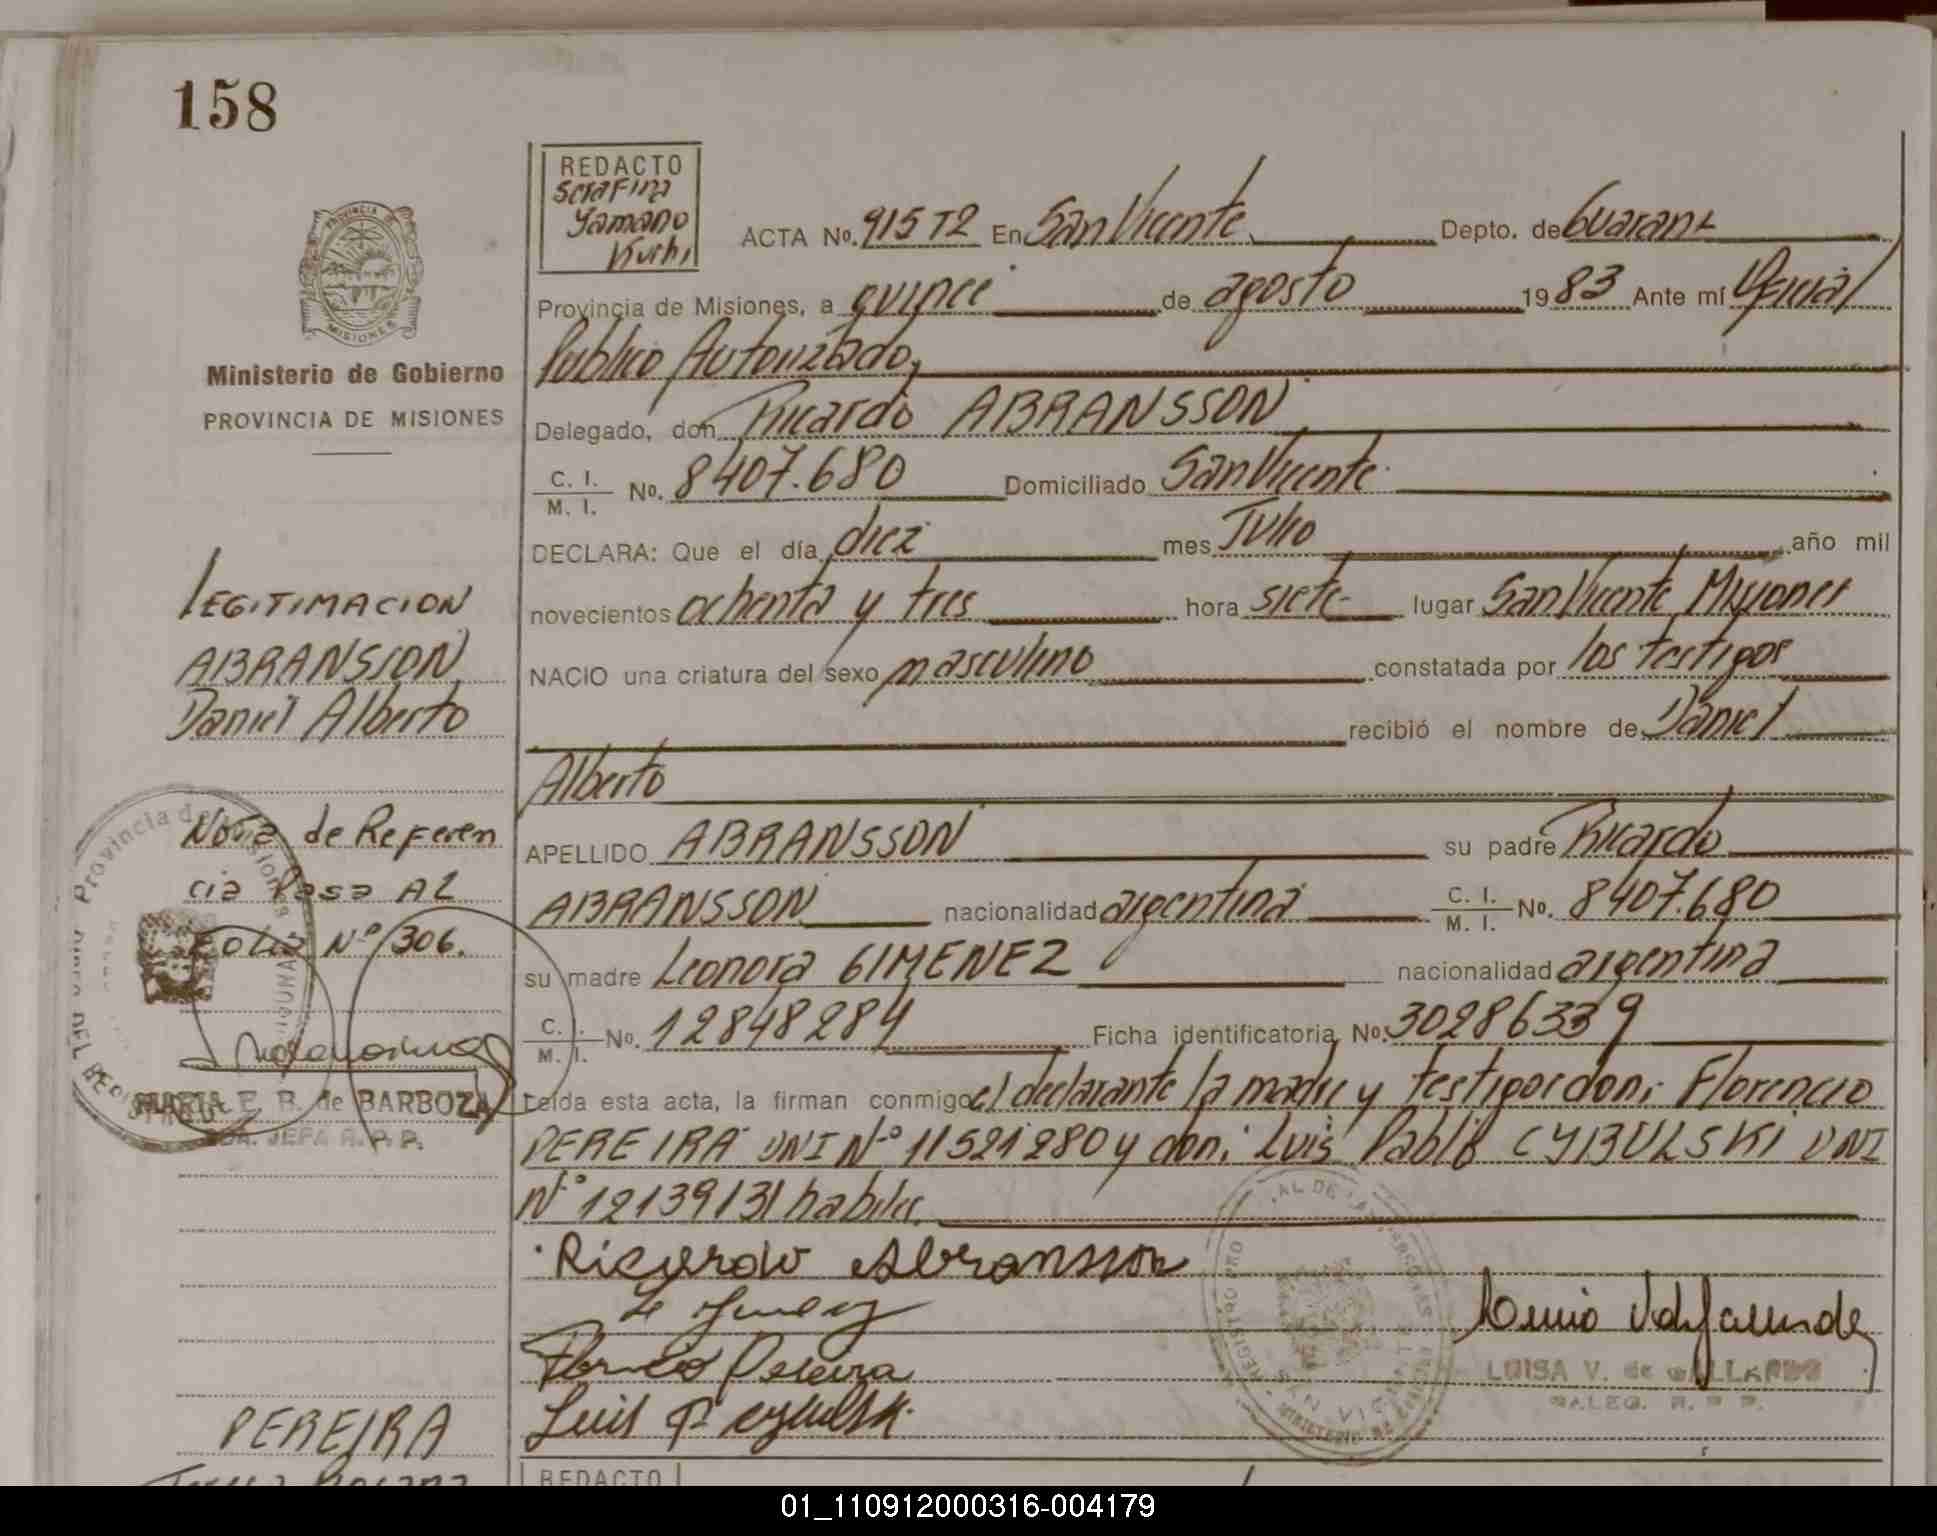 158
REDACTO
Serafina
Yamano
Kuchi
ACTA No. 91572 En San Vicente Depto. de Guarani
Provincia de Misiones, a quince de agosto 1983 Ante mí Oficial
Publico Autorizado,
Delegado, don Ricardo ABRANSSON
C. I. / M. I. No. 8407.680 Domiciliado San Vicente
DECLARA: Que el día diez mes Julio año mil
novecientos ochenta y tres hora siete lugar San Vicente Misiones
NACIO una criatura del sexo masculino constatada por los testigos
recibió el nombre de Daniel
Alberto
APELLIDO ABRANSSON su padre Ricardo
ABRANSSON nacionalidad argentina C. I. / M. I. No. 8407.680
su madre Leonora GIMENEZ nacionalidad argentina
C. I. / M. I. No. 12848284 Ficha identificatoria No. 30286339
Leída esta acta, la firman conmigo el declarante la madre y testigos don: Florencio
PEREIRA DNI Nº 11521280 y don: Luis Pablo CYBULSKI DNI
Nº 12139131 habiles.
Ricardo Abransson
Pereira
Luis P
LUISA V. de GALLARDO
DALEG. R. P. P.
PROVINCIA DE
MISIONES
Ministerio de Gobierno
PROVINCIA DE MISIONES
LEGITIMACION
ABRANSSON
Daniel Alberto
Nota de Referen
cia Pasa AL
Folio Nº 306.
Provincia de Misiones
MARIA E. B. de BARBOZA
JEFA R. P. P.
PEREIRA
REDACTO
01_110912000316-004179